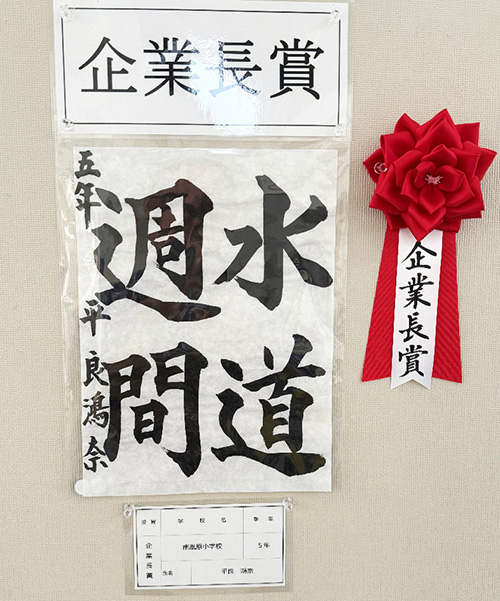 企業長賞
水道
週間
五年 平良鴻奈
企業長賞
学校名 学年
企業長賞 南風原小学校 5年
氏名 平良